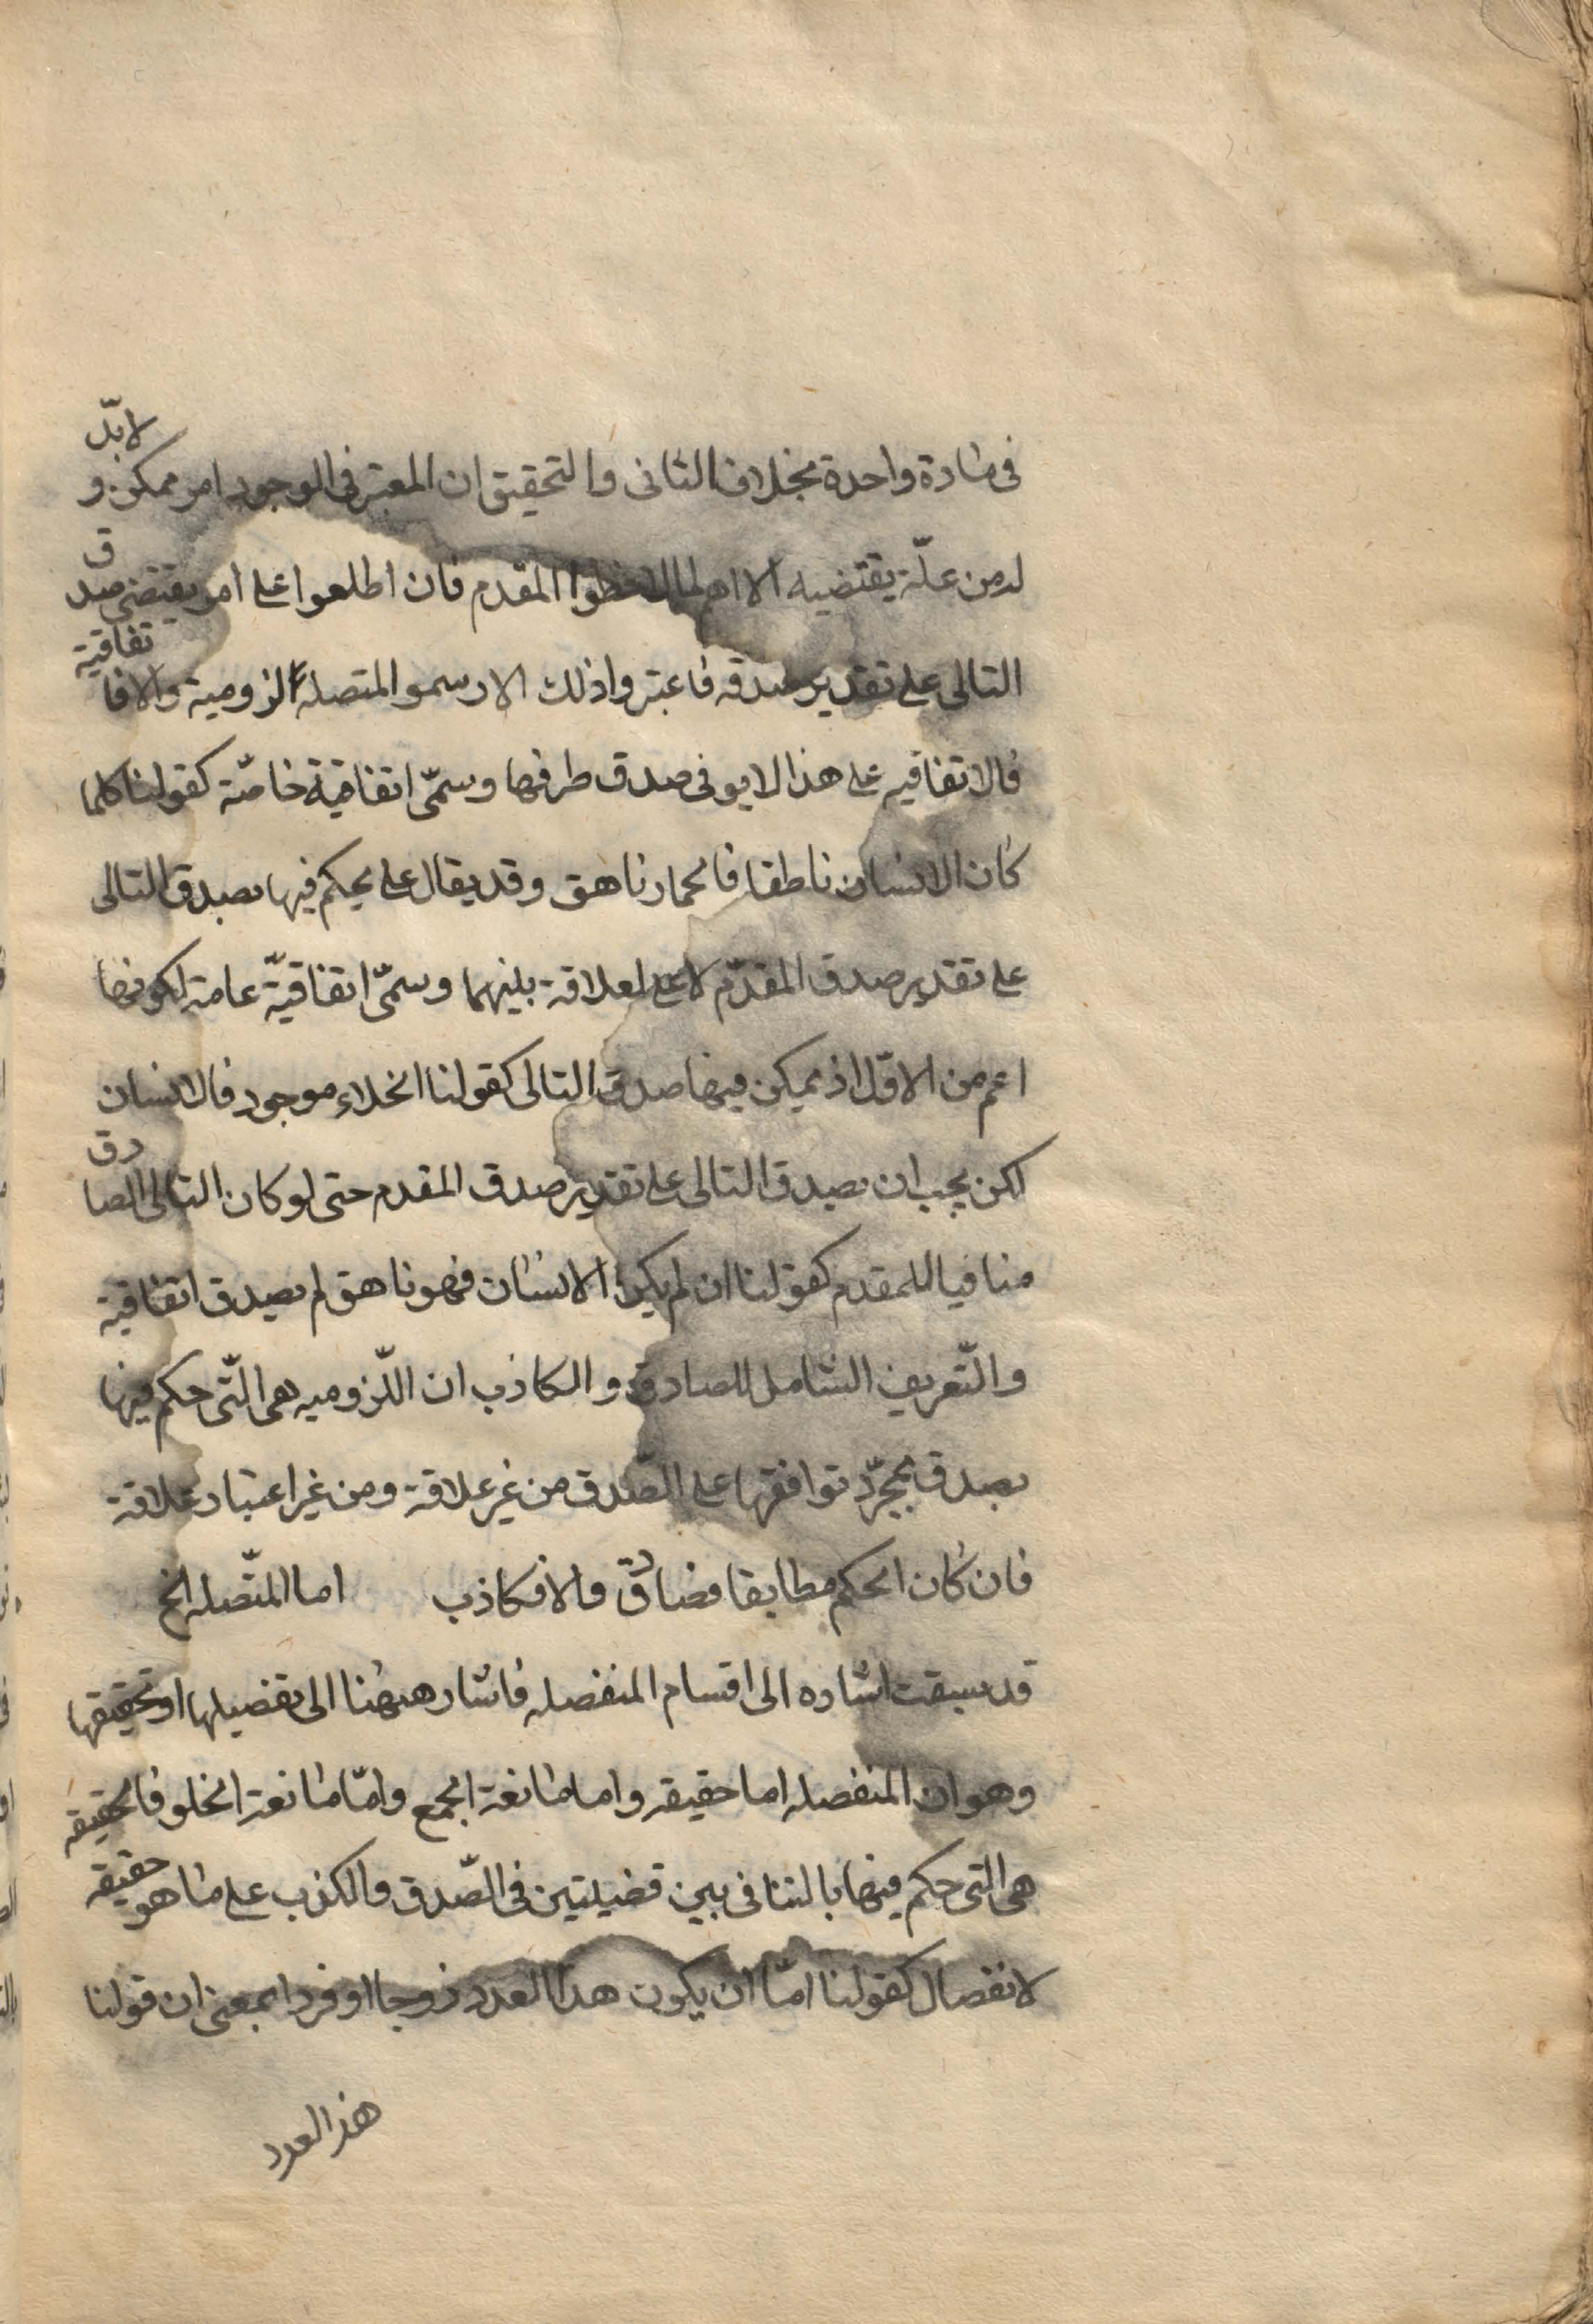 فى مادة واحدة بخلاف الثانى والتحقيق ان المعتبر فى الوجود امر ممكن و لابدّ
له من علّة يقتضيه الا اهم لما لاحظوا المقدم فان اطلعوا على امر يقتضى صدق
التالى على تقدير صدقه فاعتبروا ذلك الا رسموا المتصلة لزومية والا فاتفاقية
فالاتفاقيه على هذا لا يو فى صدق طرفيها وسمّى اتفاقية خاصّة كقولنا كلما
كان الانسان ناطقا فالحمار ناهق وقد يقال على يحكم فيها بصدق التالى
على تقدير صدق المقدّم لا على لعلاقة بينهما وسمّى اتفاقيّة عامة لكونها
اعم من الاوّل اذ يمكن فيها صدق التالى كقولنا الخلاء موجود فالانسان
لكن يجب ان يصدق التالى على تقدير صدق المقدم حتى لو كان التالى الصادق
منافيا للمقدم كقولنا ان لم يكن الانسان فهو ناهق لم يصدق اتفاقية
والتّعريف الشامل للصادق والكاذب ان اللّزوميه هى الّتى حكم فيها
بصدق بمجرّد توافقها على الصّدق من غير علاقة ومن غير اعتبار علاقة
فان كان الحكم مطابقا فصادق والا فكاذب اما المتّصله الخ
قد سبقت اشاره الى اقسام المنفصله فاشار ههنا الى تفصيلها او تحقيقها
وهو ان المنفصله اما حقيقه واما مانعة الجمع وامّا مانعة الخلو فالحقيقه
هى التى حكم فيها بالتنافى بين قضيتين فى الصّدق والكذب على ما هو حقيقه
لانفصال كقولنا امّا ان يكون هذا العدد زوجا او فردا بمعنى ان قولنا
هذا العدد